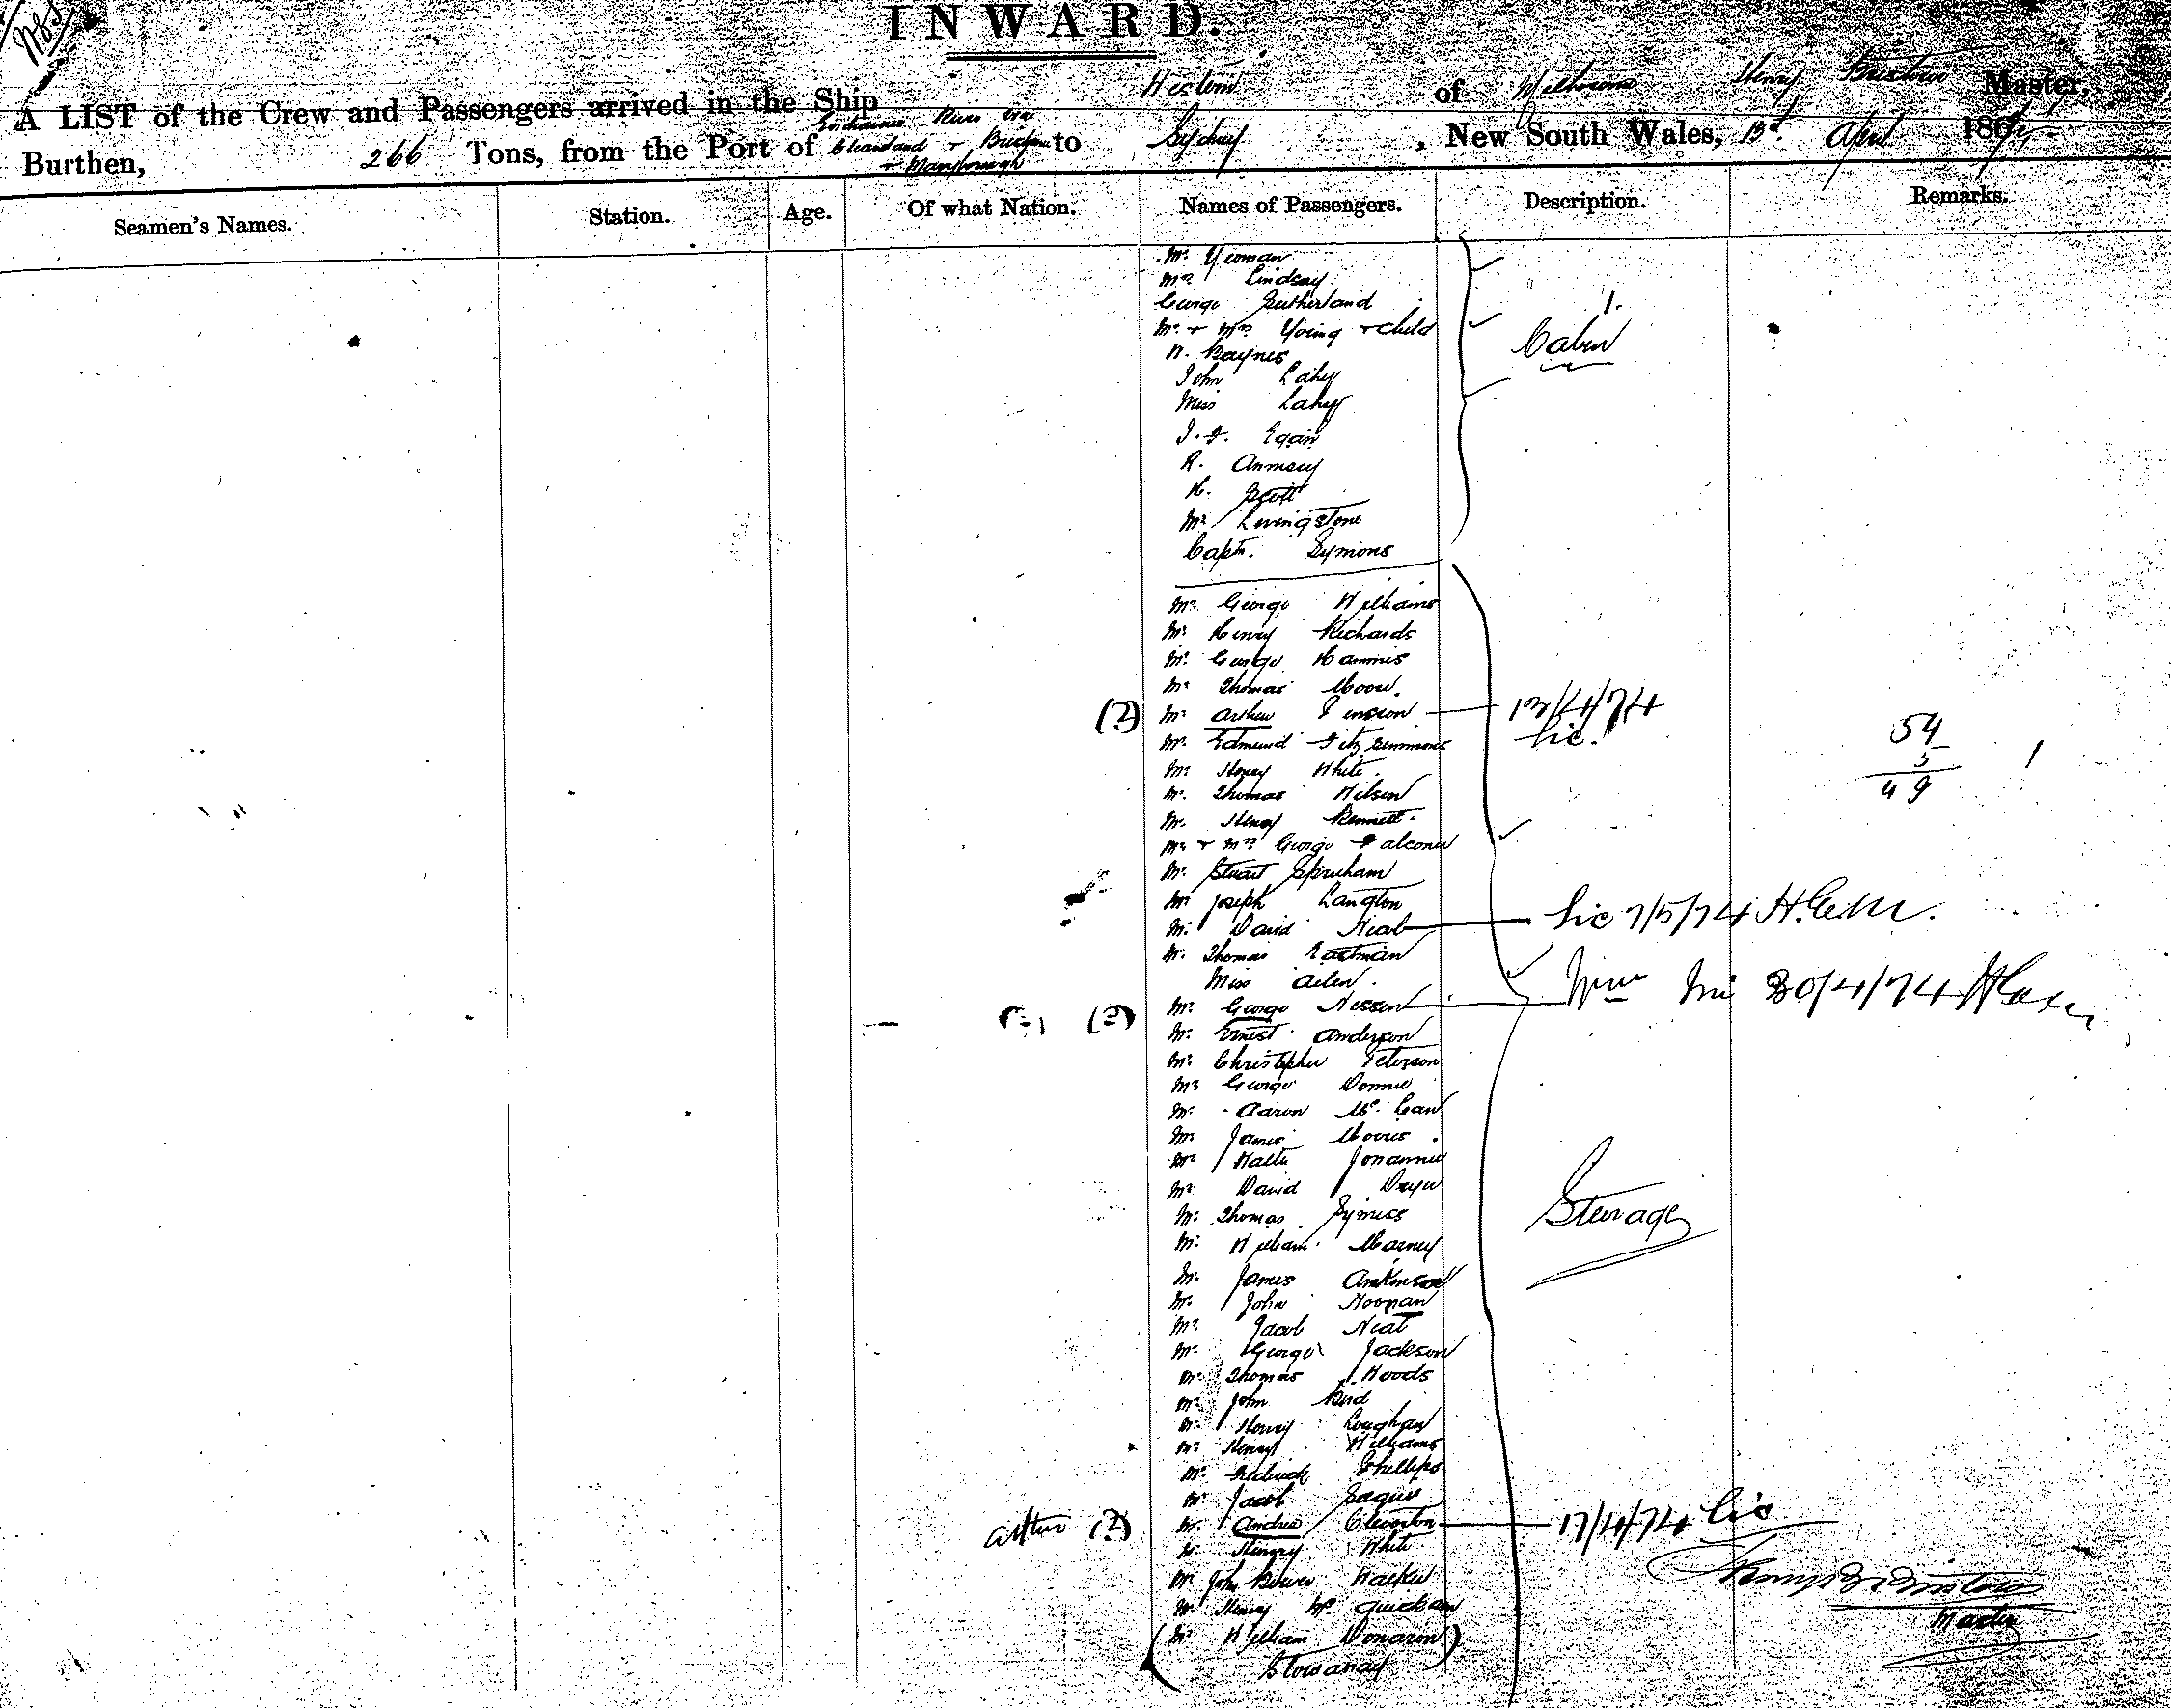 INWARD.
A LIST of the Crew and Passengers arrived in the Ship Western of Melbourne Henry Master,
Burthen, 266 Tons, from the Port of Endeavour River via Cleveland + + Maryborough to Sydney, New South Wales, 13th April 1874
Seamen's Names. Station. Age. Of what Nation. Names of Passengers. Description. Remarks.
Mr Yeoman
Mrs Lindsay
George Sutherland
Mr + Mrs Young + child
1.
Cabin
W. Baynes
John Lahey
Miss Lahey
J. F. Egan
R. Annesey
H. Scott
Mr Livingstone
Captn. Symons
Mr George Williams
Mr Henry Richards
Mr George Hannis
Mr Thomas Moore.
(?) Mr Arthur 13/4/74
Mr Edmund Fitzsimmons Lic.
54
5
49
1
Mr Henry White.
Mr Thomas Wilson
Mr Henry Bennett.
Mr + Mrs George Falconer
Mr Stuart
Mr Joseph Langton
Mr David Neal Lic 7/5/74
Mr Thomas Eastman
Miss Allen.
(?) Mr George Nissen 30/4/74
Mr Ernest Anderson
Mr Christopher Peterson
Mr George
Mr Aaron Mc Caw
Mr James Morris.
Mr Walter
Mr David Dwyer
Mr Thomas
Steerage
Mr William Marney
Mr James Amkinson
Mr John Noonan
Mr Jacob Neal
Mr George Jackson
Mr Thomas Woods
Mr John Bird
Mr Henry Loughan
Mr Henry Williams
Mr Frederick Phillips
Mr Jacob
arthur (?) Mr Andrew Cleverton 17/4/74 Lic
Mr Henry White
Mr John Bower Walker
Mr Henry Mc
Master
(Mr William Donavon)
Stowaway